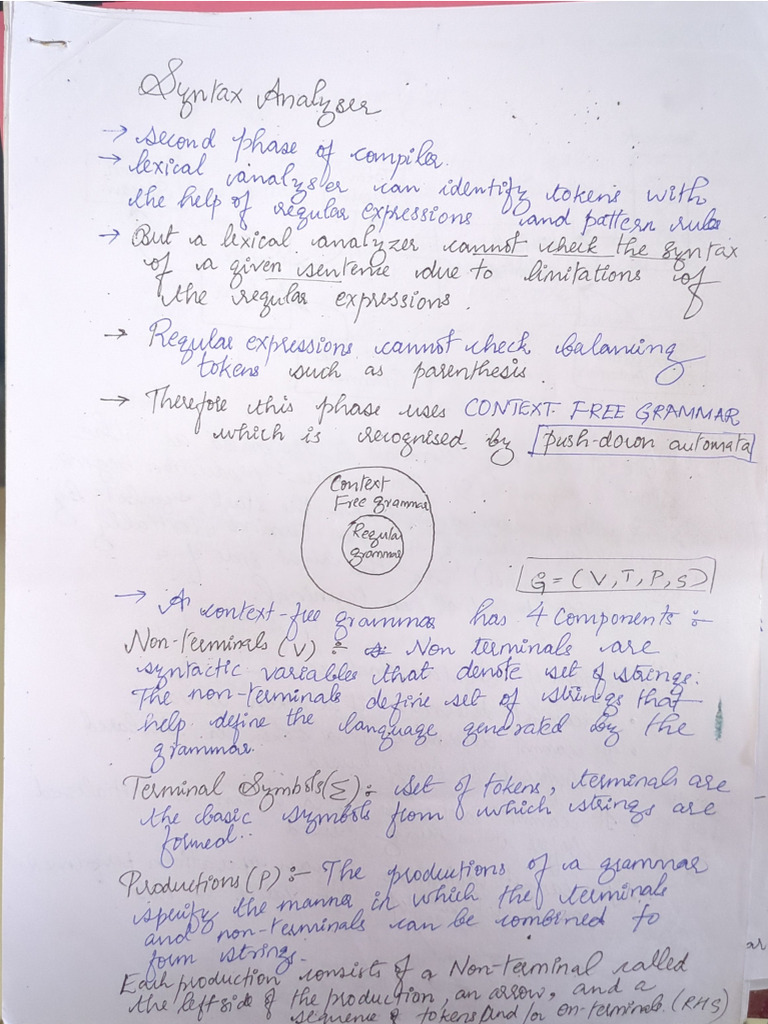 Syntax Analyser
→ second phase of compiler.
→ lexical analyser can identify tokens with
the help of regular expressions and pattern rules
→ But a lexical analyzer cannot check the syntax
of a given sentence due to limitations of
the regular expressions.
→ Regular expressions cannot check balancing
tokens such as parenthesis.
→ Therefore this phase uses CONTEXT FREE GRAMMAR
which is recognised by push-down automata
Context
Free grammar
Regular
grammar
G = (V, T, P, S)
→ A context-free grammar has 4 components :-
Non-terminals (V) :- Non terminals are
syntactic variables that denote set of strings.
The non-terminals define set of strings that
help define the language generated by the
grammar.
Terminal Symbols (Σ) :- set of tokens, terminals are
the basic symbols from which strings are
formed..
Productions (P) :- The productions of a grammar
specify the manner in which the terminals
and non-terminals can be combined to
form strings.
Each production consists of a Non-terminal called
the left side of the production, an arrow, and a
sequence of tokens and/or on-terminals (RHS)